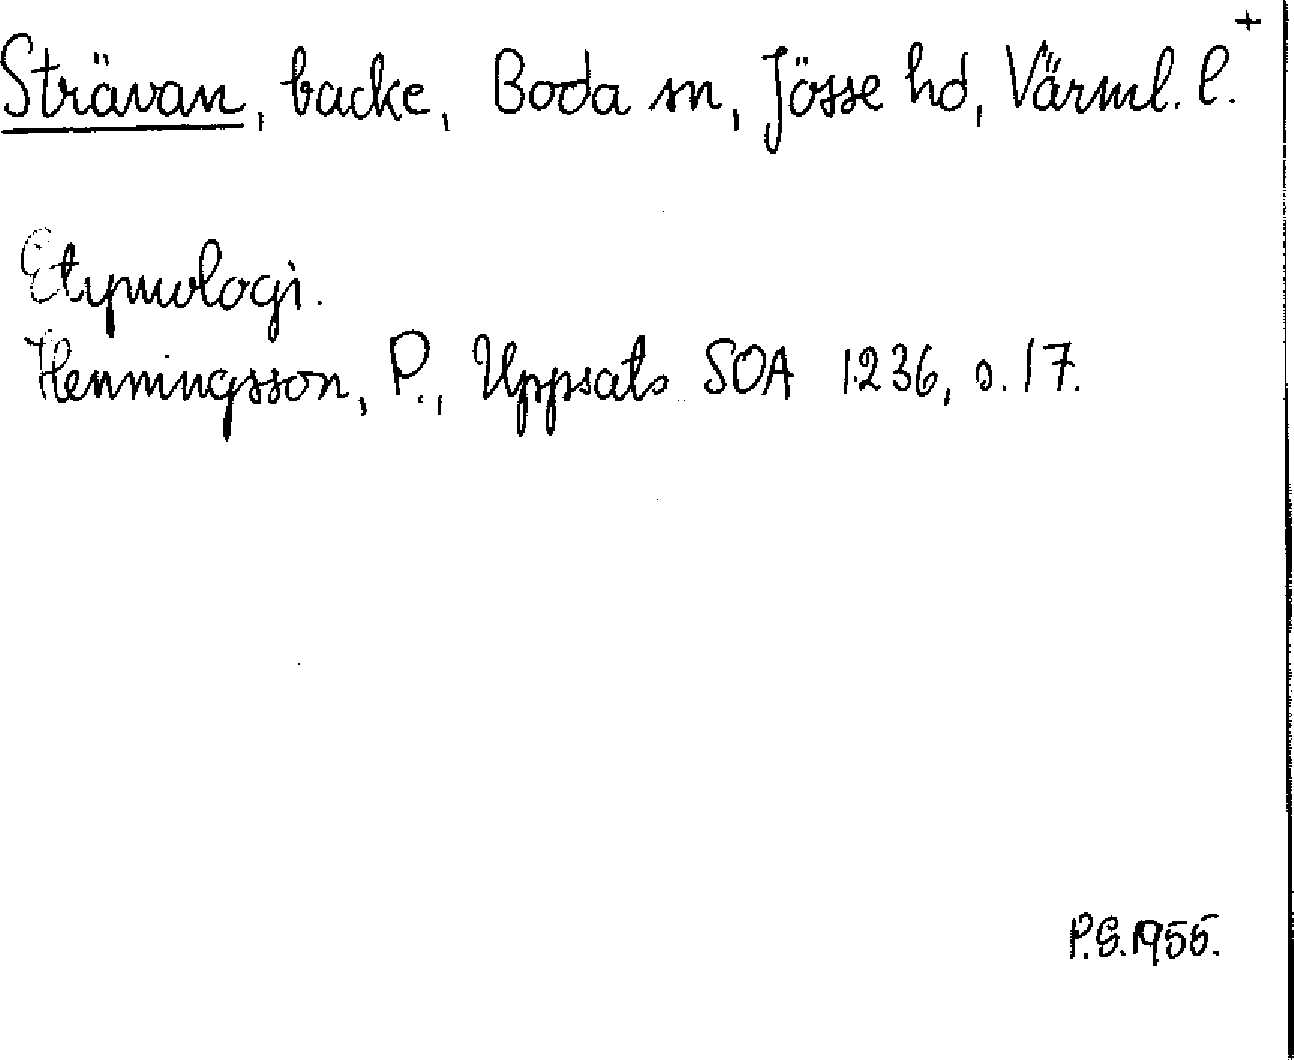 Strävan, backe, Boda sn, Jösse hd, Värml. l.+
Etymologi.
Henningsson, P., Uppsats SOA 1236, s. 17.
P.G. 1955.